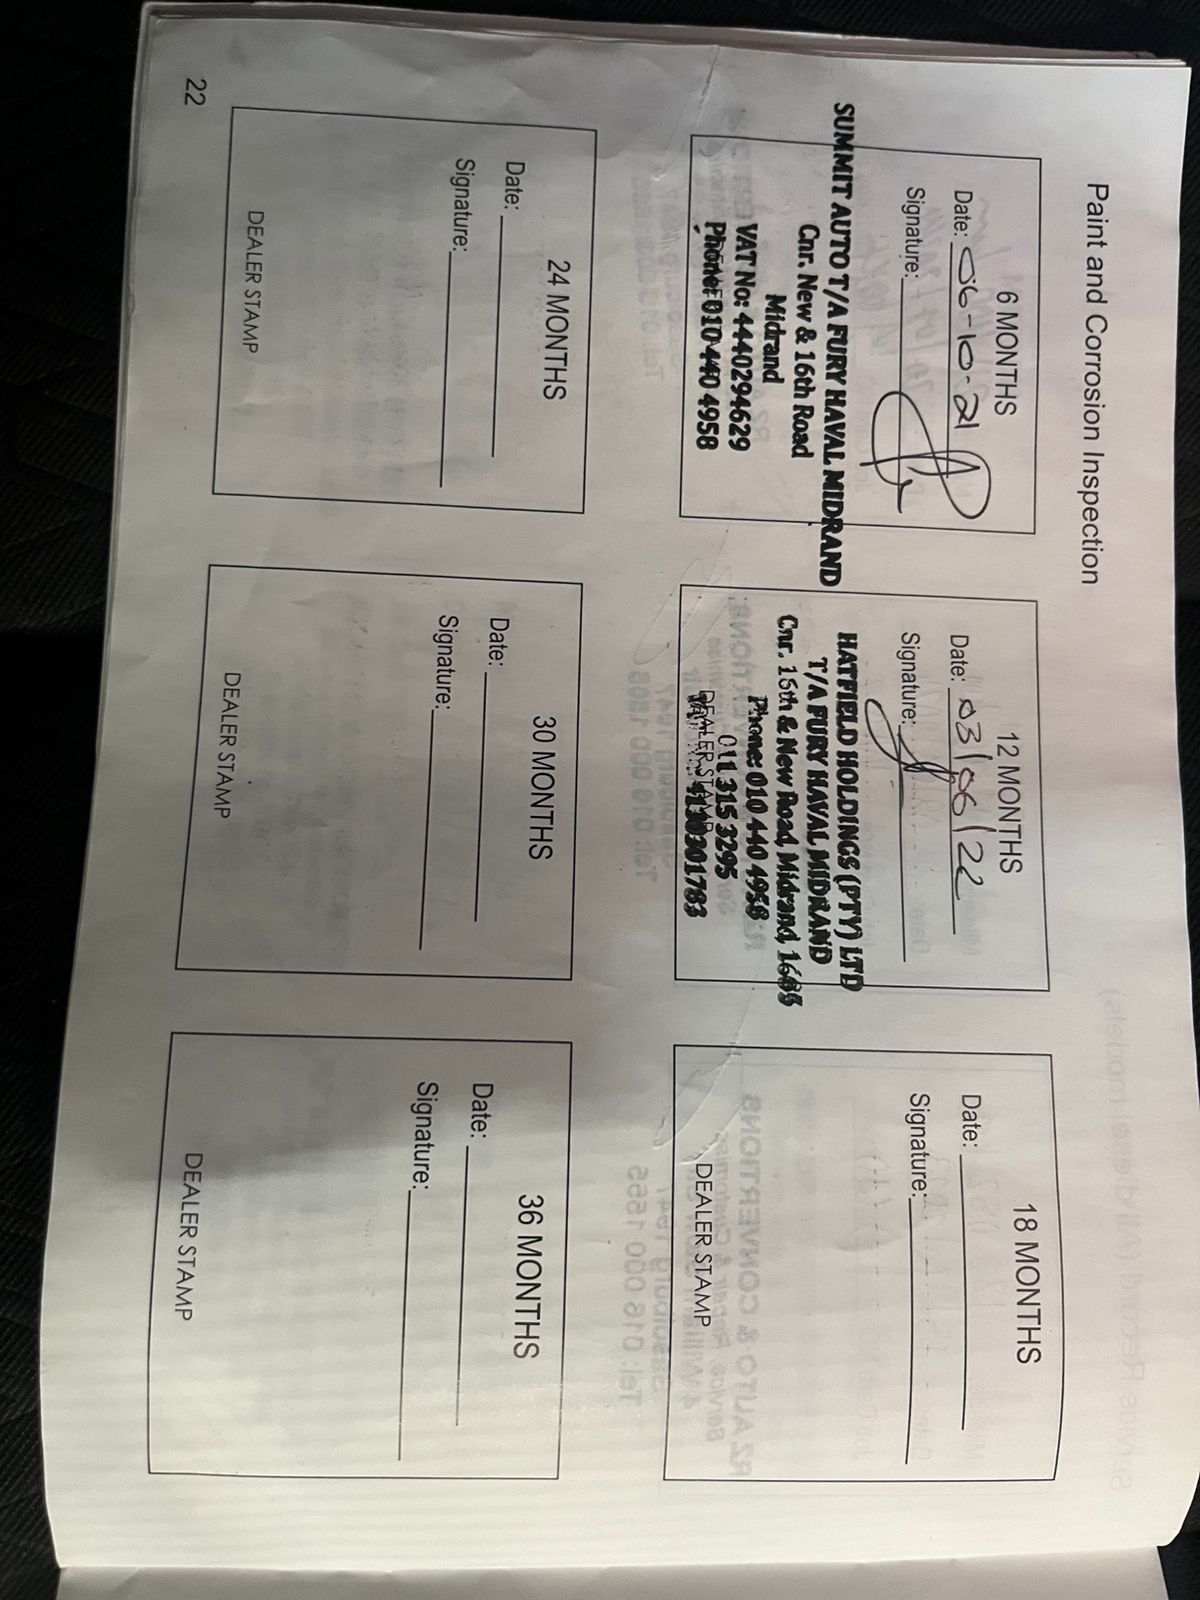 Paint and Corrosion Inspection
6 MONTHS
Date: 06-10-21
Signature:
SUMMIT AUTO T/A FURY HAVAL MIDRAND
Cnr. New & 16th Road
Midrand
VAT No: 4440294629
Phone: 010 440 4958
12 MONTHS
Date: 03/06/22
Signature:
HATFIELD HOLDINGS (PTY) LTD
T/A FURY HAVAL MIDRAND
Cnr. 16th & New Road, Midrand, 1685
Phone: 010 440 4958
011 315 3295
DEALER STAMP
18 MONTHS
Date:
Signature:
DEALER STAMP
24 MONTHS
Date:
Signature:
DEALER STAMP
30 MONTHS
Date:
Signature:
DEALER STAMP
36 MONTHS
Date:
Signature:
DEALER STAMP
22